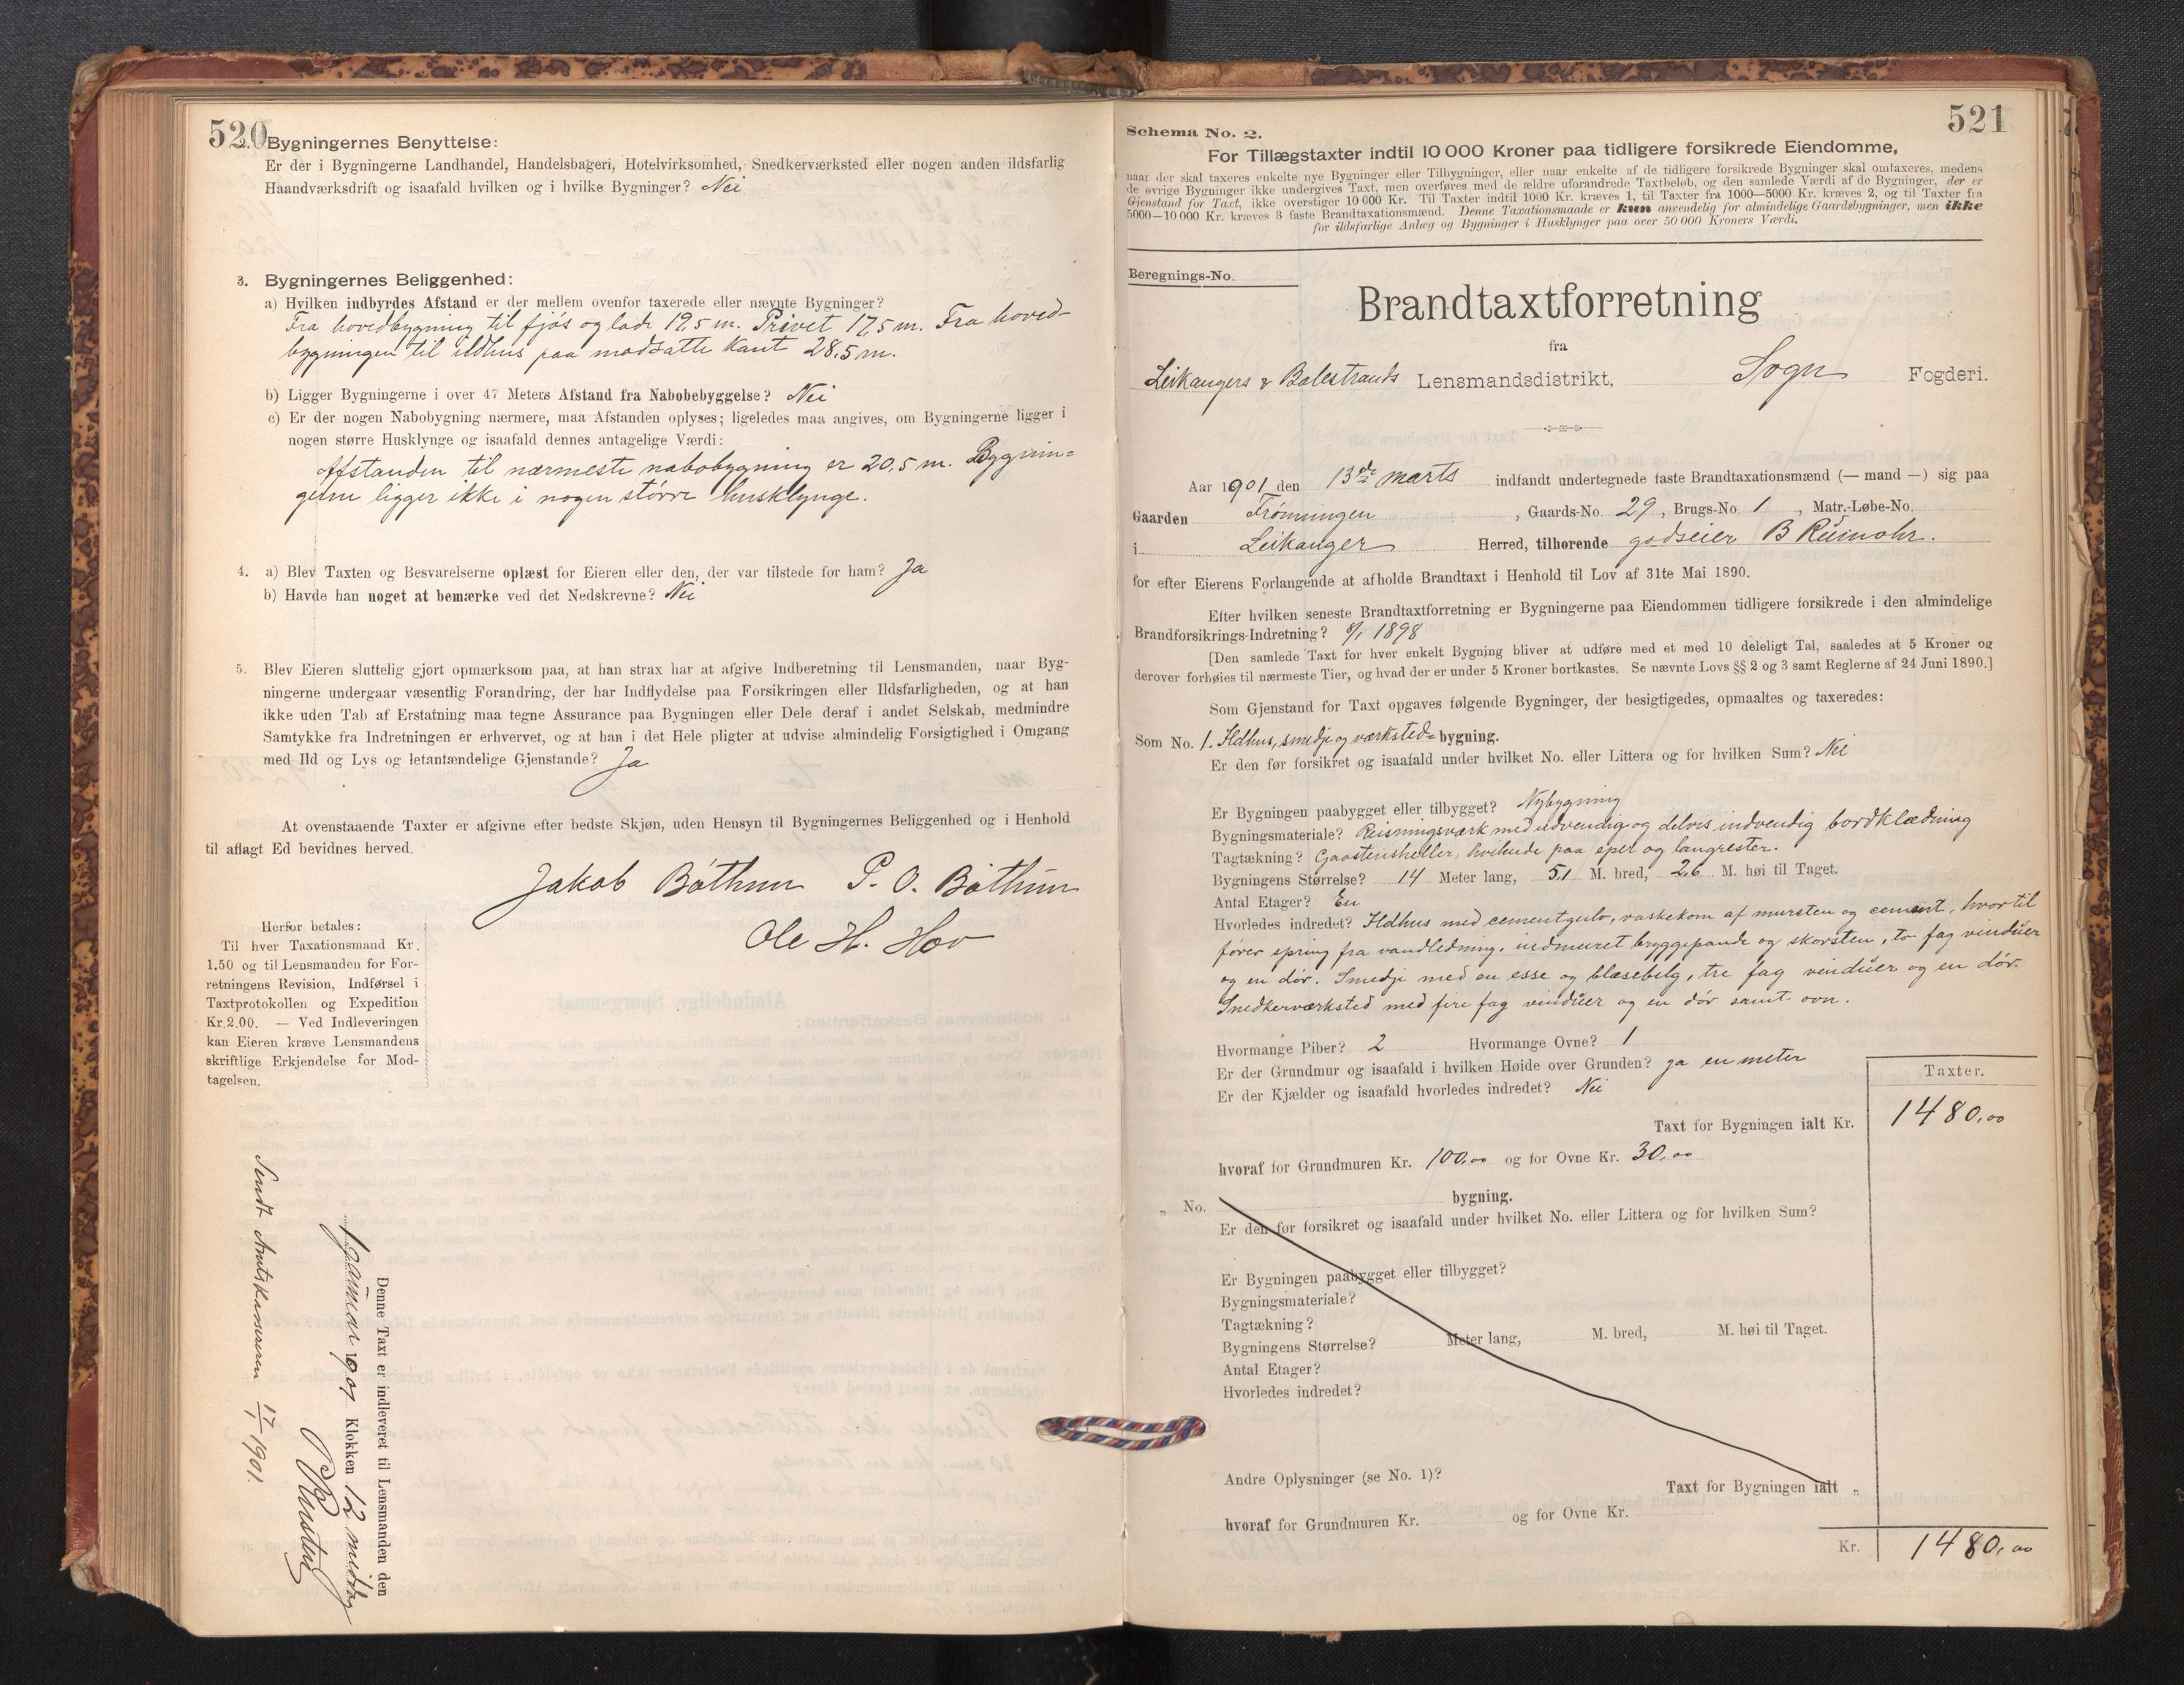 520
2. Bygningernes Benyttelse:
Er der i Bygningerne Landhandel, Handelsbageri, Hotelvirksomhed, Snedkerværksted eller nogen anden ildsfarlig
Haandværksdrift og isaafald hvilken og i hvilke Bygninger? Nei
3. Bygningernes Beliggenhed:
a) Hvilken indbyrdes Afstand er der mellem ovenfor taxerede eller nævnte Bygninger?
Fra hovedbygning til fjøs og lade 19,5 m. Privet 17,5 m. Fra hoved-
bygningen til ildhus paa modsatte kant 28,5 m.
b) Ligger Bygningerne i over 47 Meters Afstand fra Nabobebyggelse? Nei
c) Er der nogen Nabobygning nærmere, maa Afstanden oplyses; ligeledes maa angives, om Bygningerne ligger i
nogen større Husklynge og isaafald dennes antagelige Værdi:
Afstanden til nærmeste nabobygning er 20,5 m. Bygnin=
gerne ligger ikke i nogen større husklynge.
4. a) Blev Taxten og Besvarelserne oplæst for Eieren eller den, der var tilstede for ham? Ja
b) Havde han noget at bemærke ved det Nedskrevne? Nei
5. Blev Eieren sluttelig gjort opmærksom paa, at han strax har at afgive Indberetning til Lensmanden, naar Byg-
ningerne undergaar væsentlig Forandring, der har Indflydelse paa Forsikringen eller Ildsfarligheden, og at han
ikke uden Tab af Erstatning maa tegne Assurance paa Bygningen eller Dele deraf i andet Selskab, medmindre
Samtykke fra Indretningen er erhvervet, og at han i det Hele pligter at udvise almindelig Forsigtighed i Omgang
med Ild og Lys og letantændelige Gjenstande? Ja
At ovenstaaende Taxter er afgivne efter bedste Skjøn, uden Hensyn til Bygningernes Beliggenhed og i Henhold
til aflagt Ed bevidnes herved.
Jakob Bøthun P. O. Bøthun
Ole H. Hov
Herfor betales:
Til hver Taxationsmand Kr.
1.50 og til Lensmanden for For-
retningens Revision, Indførsel i
Taxtprotokollen og Expedition
Kr. 2.00. — Ved Indleveringen
kan Eieren kræve Lensmandens
skriftlige Erkjendelse for Mod-
tagelsen.
Denne Taxt er indleveret til Lensmanden den
januar 1901 Klokken 12 middag
Sendt Amtskassereren 17/1 1901.
521
Schema No. 2.
For Tillægstaxter indtil 10 000 Kroner paa tidligere forsikrede Eiendomme,
naar der skal taxeres enkelte nye Bygninger eller Tilbygninger, eller naar enkelte af de tidligere forsikrede Bygninger skal omtaxeres, medens
de øvrige Bygninger ikke undergives Taxt, men overføres med de ældre uforandrede Taxtbeløb, og den samlede Værdi af de Bygninger, der er
Gjenstand for Taxt, ikke overstiger 10 000 Kr. Til Taxter indtil 1000 Kr. kræves 1, til Taxter fra 1000—5000 Kr. kræves 2, og til Taxter fra
5000—10 000 Kr. kræves 3 faste Brandtaxationsmænd. Denne Taxationsmaade er kun anvendelig for almindelige Gaardsbygninger, men ikke
for ildsfarlige Anlæg og Bygninger i Husklynger paa over 50 000 Kroners Værdi.
Beregnings-No.
Brandtaxtforretning
fra
Leikangers & Balestrands Lensmandsdistrikt, Sogn Fogderi.
Aar 1901 den 13de marts indfandt undertegnede faste Brandtaxationsmænd (— mand —) sig paa
Gaarden Frønningen, Gaards-No. 29, Brugs-No. 1, Matr.-Løbe-No.
i Leikanger Herred, tilhørende godseier B Rumohr.
for efter Eierens Forlangende at afholde Brandtaxt i Henhold til Lov af 31te Mai 1890.
Efter hvilken seneste Brandtaxtforretning er Bygningerne paa Eiendommen tidligere forsikrede i den almindelige
Brandforsikrings-Indretning? 8/1 1898
[Den samlede Taxt for hver enkelt Bygning bliver at udføre med et med 10 deleligt Tal, saaledes at 5 Kroner og
derover forhøies til nærmeste Tier, og hvad der er under 5 Kroner bortkastes. Se nævnte Lovs §§ 2 og 3 samt Reglerne af 24 Juni 1890.]
Som Gjenstand for Taxt opgaves følgende Bygninger, der besigtigedes, opmaaltes og taxeredes:
Som No. 1. Ildhus, smedje og værksted=bygning.
Er den før forsikret og isaafald under hvilket No. eller Littera og for hvilken Sum? Nei
Er Bygningen paabygget eller tilbygget? Nybygning
Bygningsmateriale? Reisningsværk med udvendig og delvis indvendig bordklædning
Tagtækning? Gaastensheller, hvilende paa sper og langrester.
Bygningens Størrelse? 14 Meter lang, 5,1 M. bred, 2,6 M. høi til Taget.
Antal Etager? En
Hvorledes indredet? Ildhus med cementgulv, vaskekom af mursten og cement, hvortil
fører spring fra vandledning, indmuret bryggepande og skorsten, to fag vinduer
og en dør. Smedje med en esse og blæsebelg, tre fag vinduer og en dør.
Snedkerværksted med fire fag vinduer og en dør samt ovn.
Hvormange Piber? 2 Hvormange Ovne? 1
Er der Grundmur og isaafald i hvilken Høide over Grunden? ja en meter
Er der Kjælder og isaafald hvorledes indredet? Nei
Taxter.
Taxt for Bygningen ialt Kr. 1480,00
hvoraf for Grundmuren Kr. 100,00 og for Ovne Kr. 30,00
„ No. bygning.
Er den før forsikret og isaafald under hvilket No. eller Littera og for hvilken Sum?
Er Bygningen paabygget eller tilbygget?
Bygningsmateriale?
Tagtækning?
Bygningens Størrelse? Meter lang, M. bred, M. høi til Taget.
Antal Etager?
Hvorledes indredet?
Andre Oplysninger (se No. 1)?
Taxt for Bygningen ialt „
hvoraf for Grundmuren Kr. og for Ovne Kr.
Kr. 1480,00